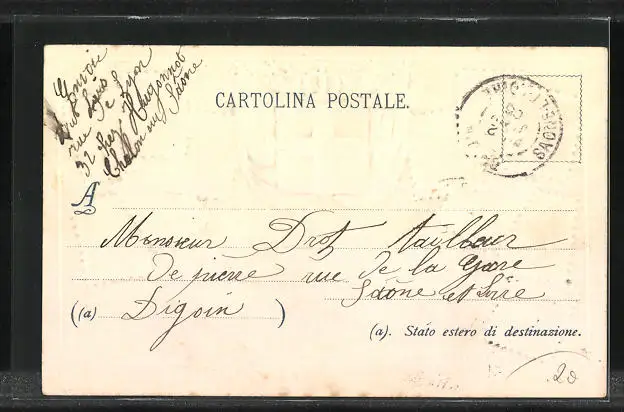 Envoi
rue de Lyon
32 chez Hugonnot
Chalon sur Saône
CARTOLINA POSTALE.
SAONE
A
Monsieur Drot tailleur
de pierre rue de la Gare
Saône et Loire
(a) Digoin
(a). Stato estero di destinazione.
20